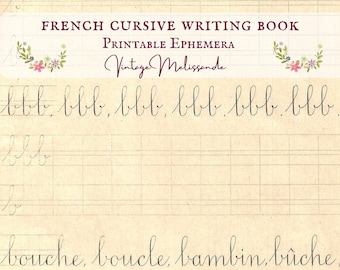 FRENCH CURSIVE WRITING BOOK
PRINTABLE EPHEMERA
VintageMelissande
bbb, bbb, bbb, bbb, bbb, bbb
bbb
b
bouche, boucle, bambin, bûche,